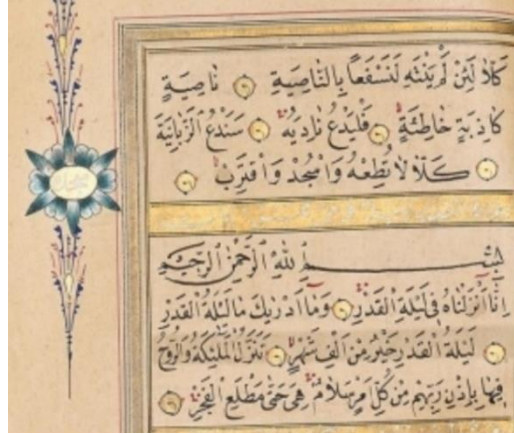 كَلَّا لَئِنْ لَمْ يَنْتَهِ لَنَسْفَعًا بِالنَّاصِيَةِ نَاصِيَةٍ
كَاذِبَةٍ خَاطِئَةٍ فَلْيَدْعُ نَادِيَهُ سَنَدْعُ الزَّبَانِيَةَ
كَلَّا لَا تُطِعْهُ وَاسْجُدْ وَاقْتَرِبْ
بِسْمِ اللهِ الرَّحْمٰنِ الرَّحِيمِ
اِنَّا اَنْزَلْنَاهُ فِى لَيْلَةِ الْقَدْرِ وَمَا اَدْرٰيكَ مَا لَيْلَةُ الْقَدْرِ
لَيْلَةُ الْقَدْرِ خَيْرٌ مِنْ اَلْفِ شَهْرٍ تَنَزَّلُ الْمَلٰٓئِكَةُ وَالرُّوحُ
فِيهَا بِاِذْنِ رَبِّهِمْ مِنْ كُلِّ اَمْرٍ سَلَامٌ هِىَ حَتّٰى مَطْلَعِ الْفَجْرِ